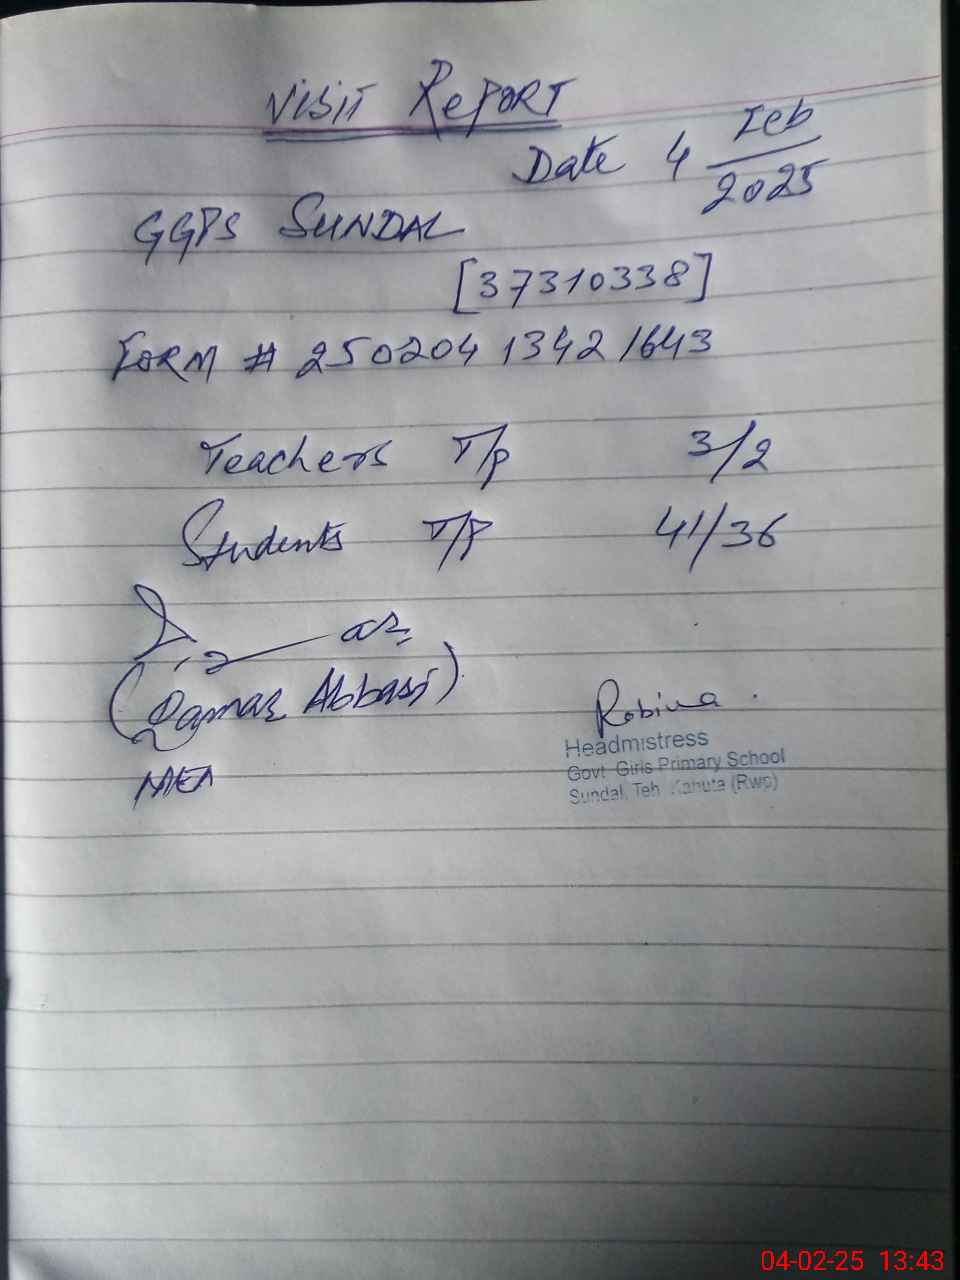 VISIT REPORT
Date 4 Feb
2025
GGPS SUNDAL
[37310338]
FORM # 250204 1342 1643
Teachers T/P 3/2
Students T/P 41/36
(Qamar Abbasi)
MEA
Robina
Headmistress
Govt Girls Primary School
Sundal, Teh Kahuta (Rwp)
04-02-25 13:43